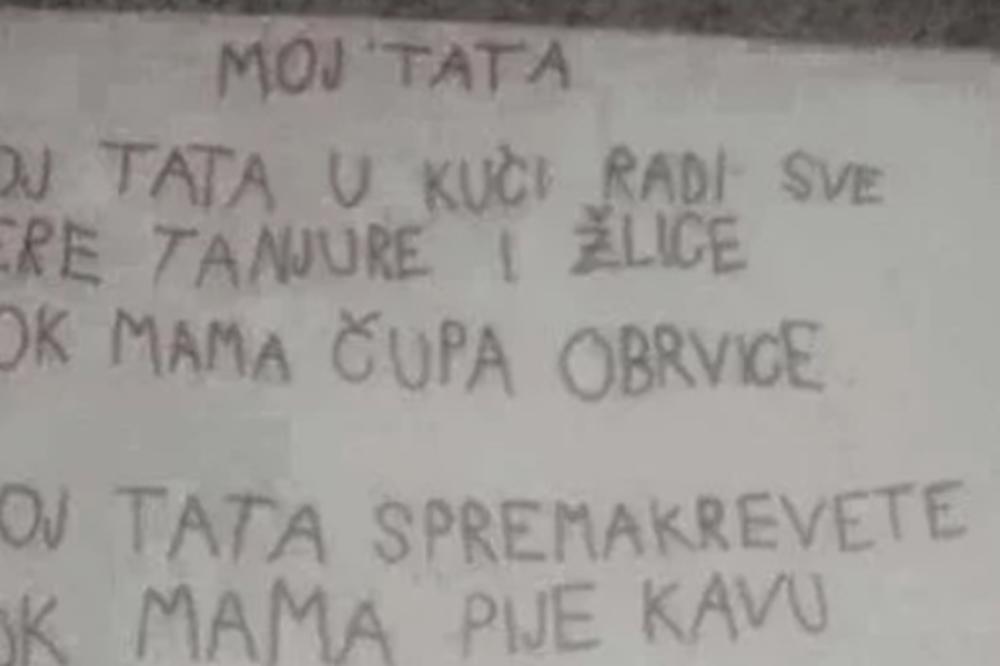 MOJ TATA
OJ TATA U KUČI RADI SVE
ERE TANJURE I ŽLICE
OK MAMA ČUPA OBRVICE
OJ TATA SPREMAKREVETE
OK MAMA PIJE KAVU